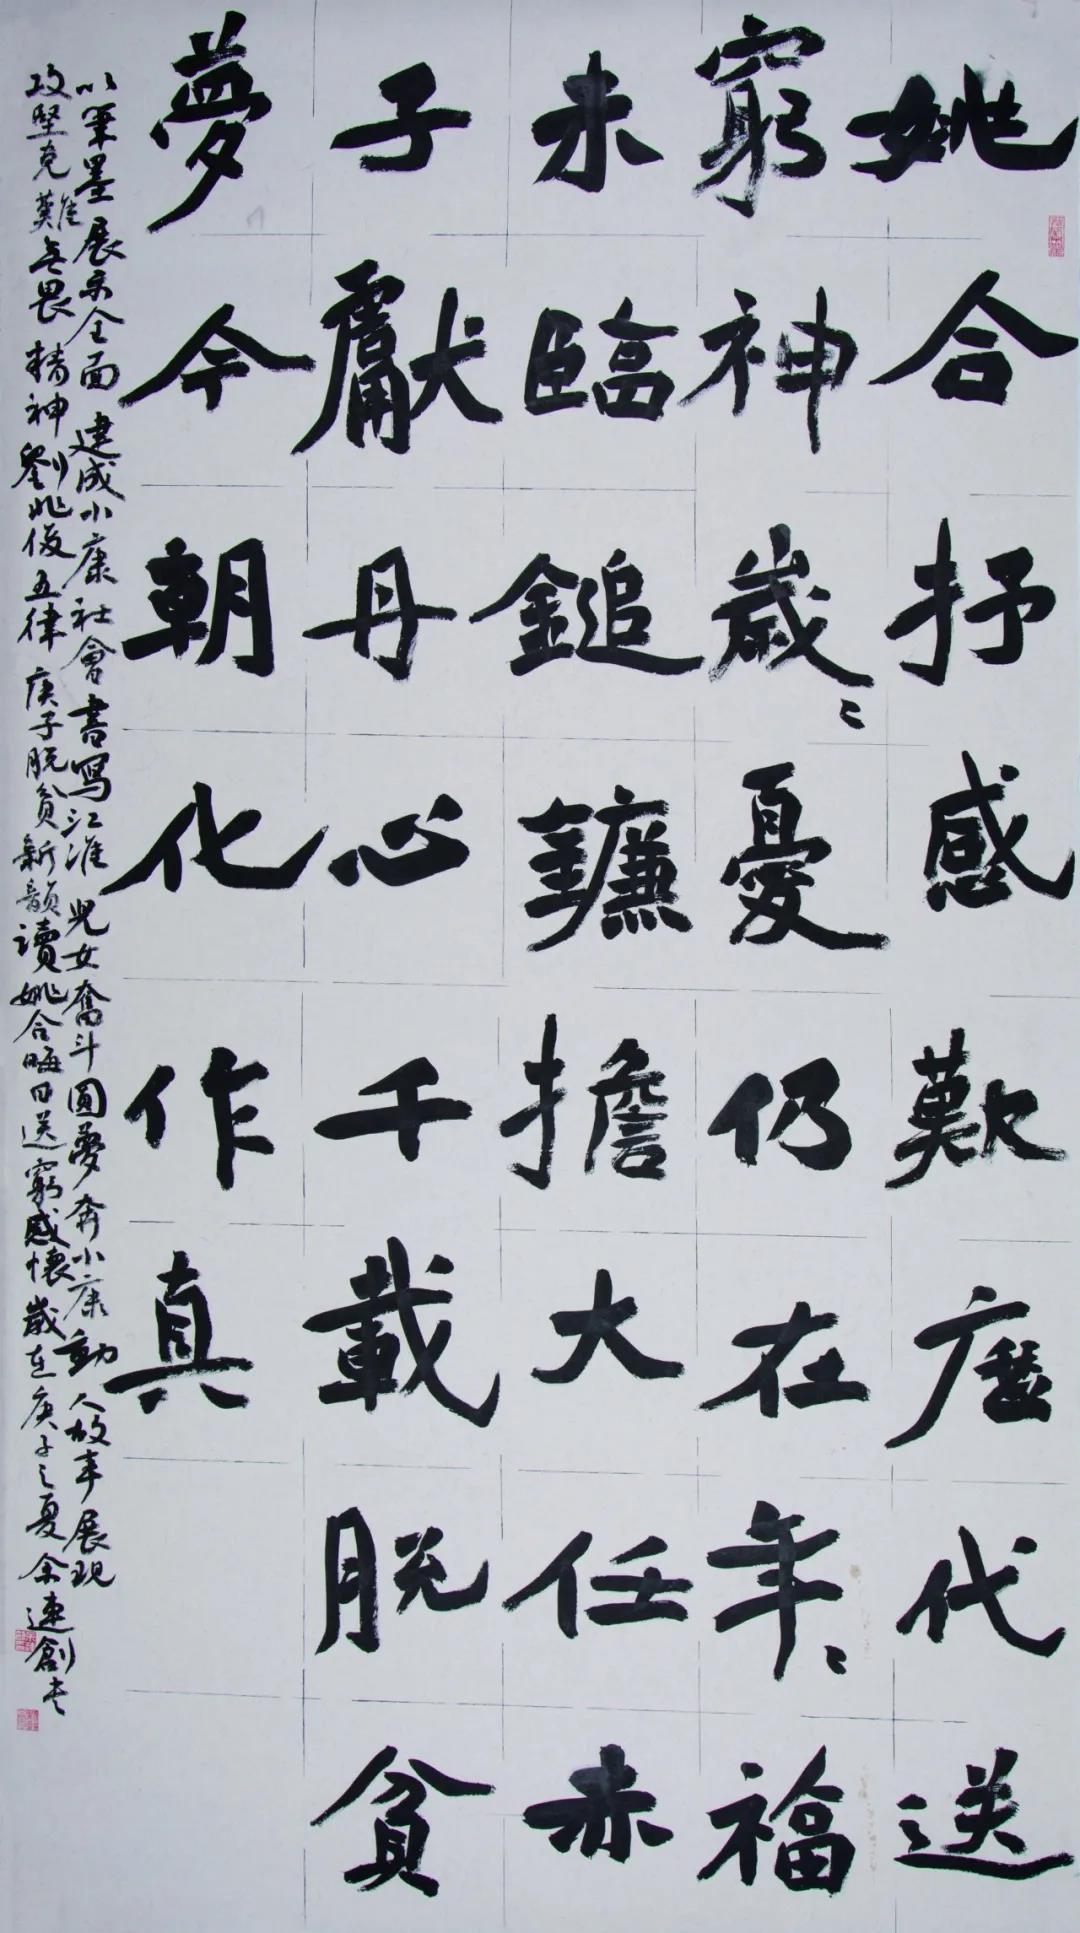 姚合抒感歎歷代送
窮神歲〻憂仍在年〻福
未臨鎚鐮擔大任赤
子獻丹心千載脫貧
夢今朝化作真
以筆墨展示全面建成小康社會書寫江淮兒女奮斗圓夢奔小康動人故事展現
攻堅克難無畏精神劉兆俊五律庚子脫貧新韻讀姚合晦日送窮感懷歲在庚子之夏余速創書